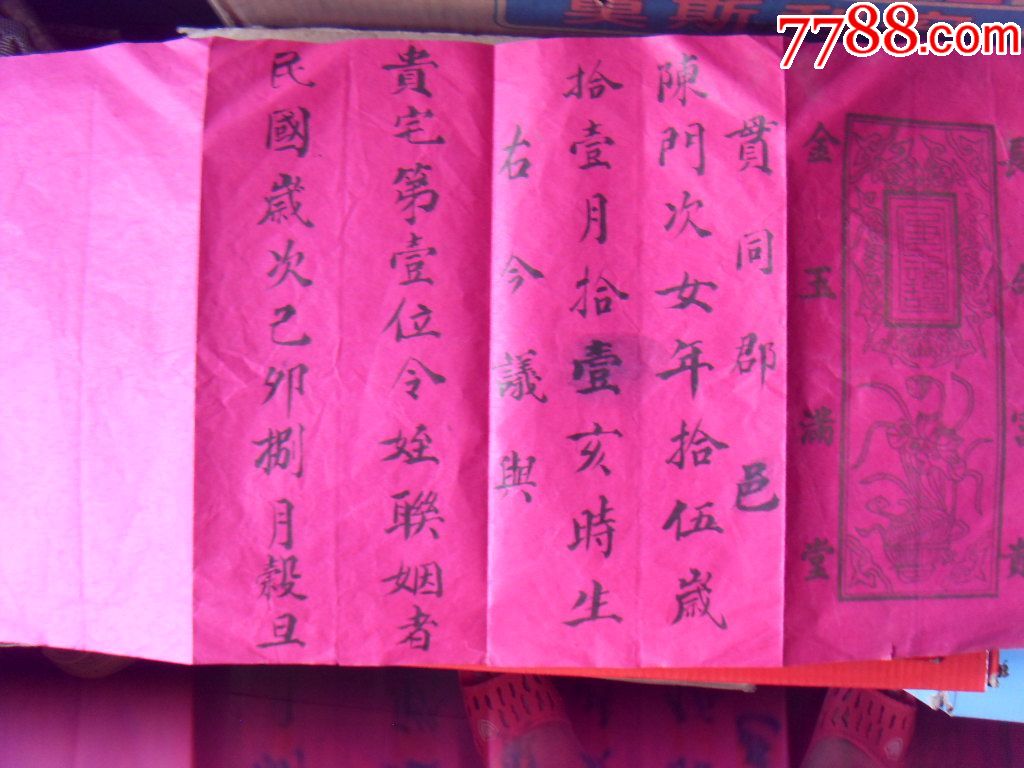 7788.com
金玉滿堂
貫同郡邑
陳門次女年拾伍歲
拾壹月拾壹亥時生
右今議與
貴宅第壹位令姪聯姻者
民國歲次己卯捌月穀旦